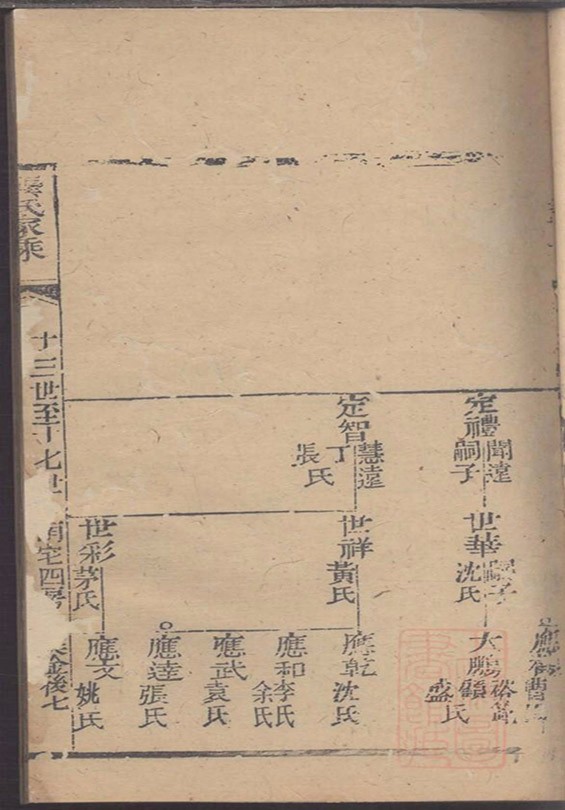 定禮 聞遠
嗣子
世華
沈氏
大鵬
顧
盛氏
定智 慧遠
丁
張氏
世祥 黃氏
應乾 沈氏
應和 李氏
余氏
應武 袁氏
應達 張氏
世彩 茅氏
應文 姚氏
氏家乘
十三世至十七世
南宅四房
後七